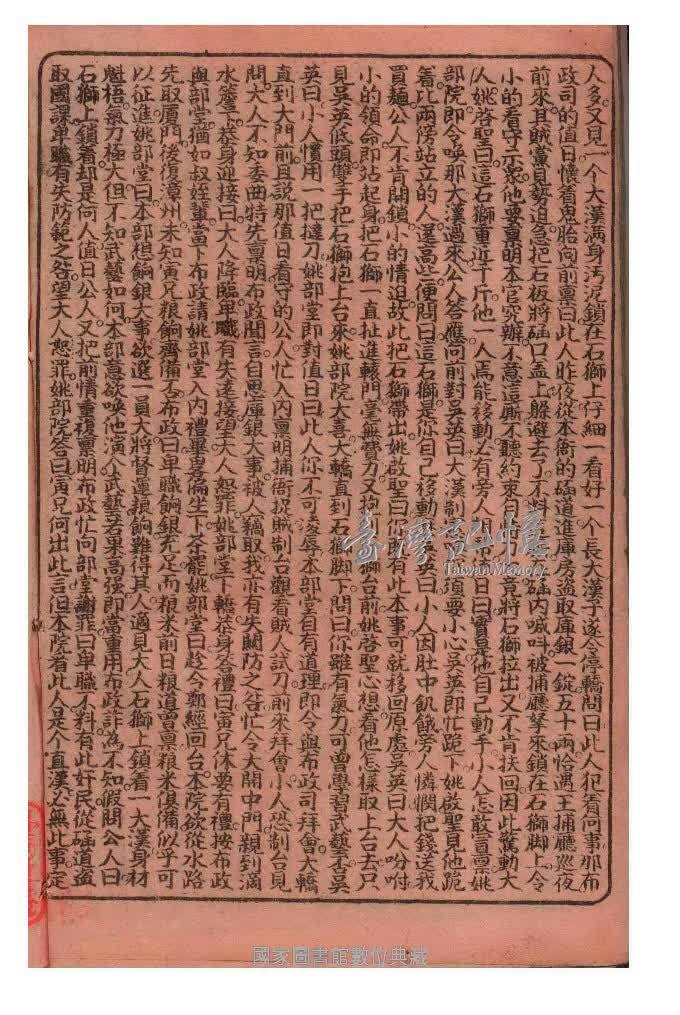 人多又見一个大漢满身汚泥鎖在石獅上仔細一看好一个長大漢子遂令停轎問曰此人犯着何事那布
政司的值日懷着鬼胎向前禀曰此人昨夜從本衙的磕道進庫房盗取庫銀一錠五十兩恰遇王捕廳廵夜
前來其賊黨見勢迫急把石板將磕口盖上躱避去了不料磕内喊呌被捕廳拏來鎖在石獅脚上令
小的看守示衆他要禀明本官究辦不意這厮不聽約束竟將石獅拉出又不肯扶回因此驚動大
人姚啓聖曰這石獅重近千斤他一人焉能移動必有旁人相帮曰實是他自己動手小人怎敢冒禀姚
部院即令喚那大漢過來公人答應向前對吳英曰大漢制須要小心吳英即忙跪下姚啟聖見他跪
着比兩傍站立的人還高些便問曰這石獅是你自己移動英曰小人因肚中飢餓旁人憐憫把錢送我
買麵公人不肯開鎖小的情迫故此把石獅帶出姚啟聖曰你既有此本事可就移回原處吳英曰大人吩咐
小的領命即站起身把石獅一直扯進轅門毫無費力又抱獅台前姚啓聖心想看他怎樣取上台去只
見吳英低頭雙手把石獅抱上台來姚部院大喜大轎直到石獅脚下問曰你雖有氣力可曾學習武藝否吳
英曰小人慣用一把撻刀姚部堂即對值日曰此人你不可凌辱本部堂自有道理即令與布政司拜會大轎
直到大門前且説那值日看守的公人忙入内禀明捕衙捉賊制台觀看賊人試刀前來拜會小人恐制台見
問大人不知委曲特先禀明布政聞言自思庫銀大事被人竊取我亦有失關防之咎忙令大開中門親到滴
水簷下恭身迎接曰大人降臨卑職有失遠接望大人恕罪姚部堂下轎恭身答禮曰寅兄休要有禮按布政
與部堂猶如叔姪輩當下布政請姚部堂入内禮畢畧偏坐下茶罷姚部堂曰趂今鄭經回台本院欲從水路
先取厦門後復漳州未知寅兄粮餉齊備否布政曰卑職餉銀充足而粮米前日粮道曽禀粮米俱備似乎可
以征進姚部堂曰本部想餉銀大事欲選一員大將督運粮餉難得其人適見大人石獅上鎖着一大漢身材
魁梧氣力極大但不知武藝如何本部意欲喚他演入武藝若果高强即當重用布政詐為不知假問公人曰
石獅上鎖着却是何人值日公人又把前情重複禀明布政忙向部堂謝罪曰卑職不料有此奸民從磕道盗
取國課卑職有失防範之咎望大人恕罪姚部院答曰寅兄何出此言但本院看此人是个直漢必無此事定
臺灣記憶
Taiwan Memory
國家圖書館數位典藏